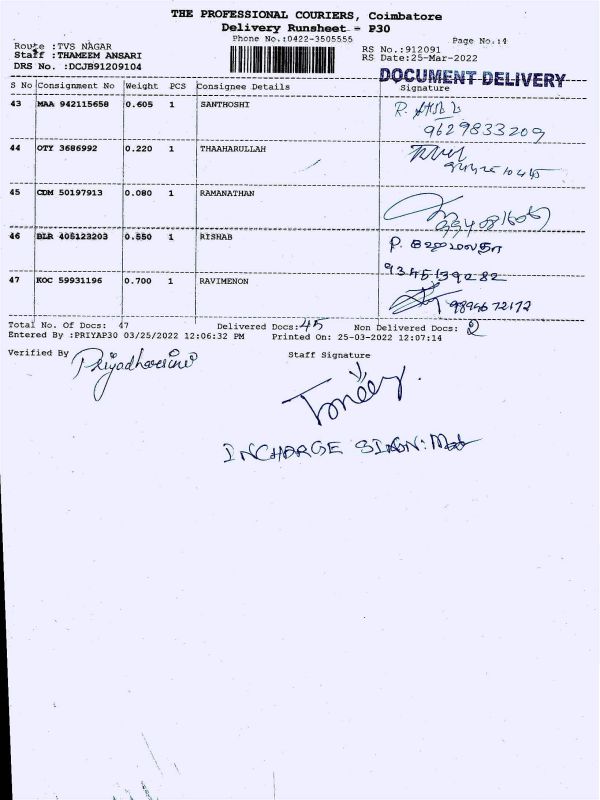 THE PROFESSIONAL COURIERS, Coimbatore
Delivery Runsheet - P30
Phone No.:0422-3505555
Page No.:4
Route :TVS NAGAR
RS No.:912091
Staff :THAMEEM ANSARI
RS Date:25-Mar-2022
DRS No. :DCJB91209104
DOCUMENT DELIVERY
S No Consignment No Weight PCS Consignee Details Signature
43 MAA 942115658 0.605 1 SANTHOSHI
9629833209
44 OTY 3686992 0.220 1 THAAHARULLAH
45 CDM 50197913 0.080 1 RAMANATHAN
46 BLR 405123203 0.550 1 RISHAB
47 KOC 59931196 0.700 1 RAVIMENON
Total No. Of Docs: 47 Delivered Docs: 45 Non Delivered Docs: 2
Entered By :PRIYAP30 03/25/2022 12:06:32 PM Printed On: 25-03-2022 12:07:14
Verified By Priyadharsini Staff Signature
INCHARGE SIGN: